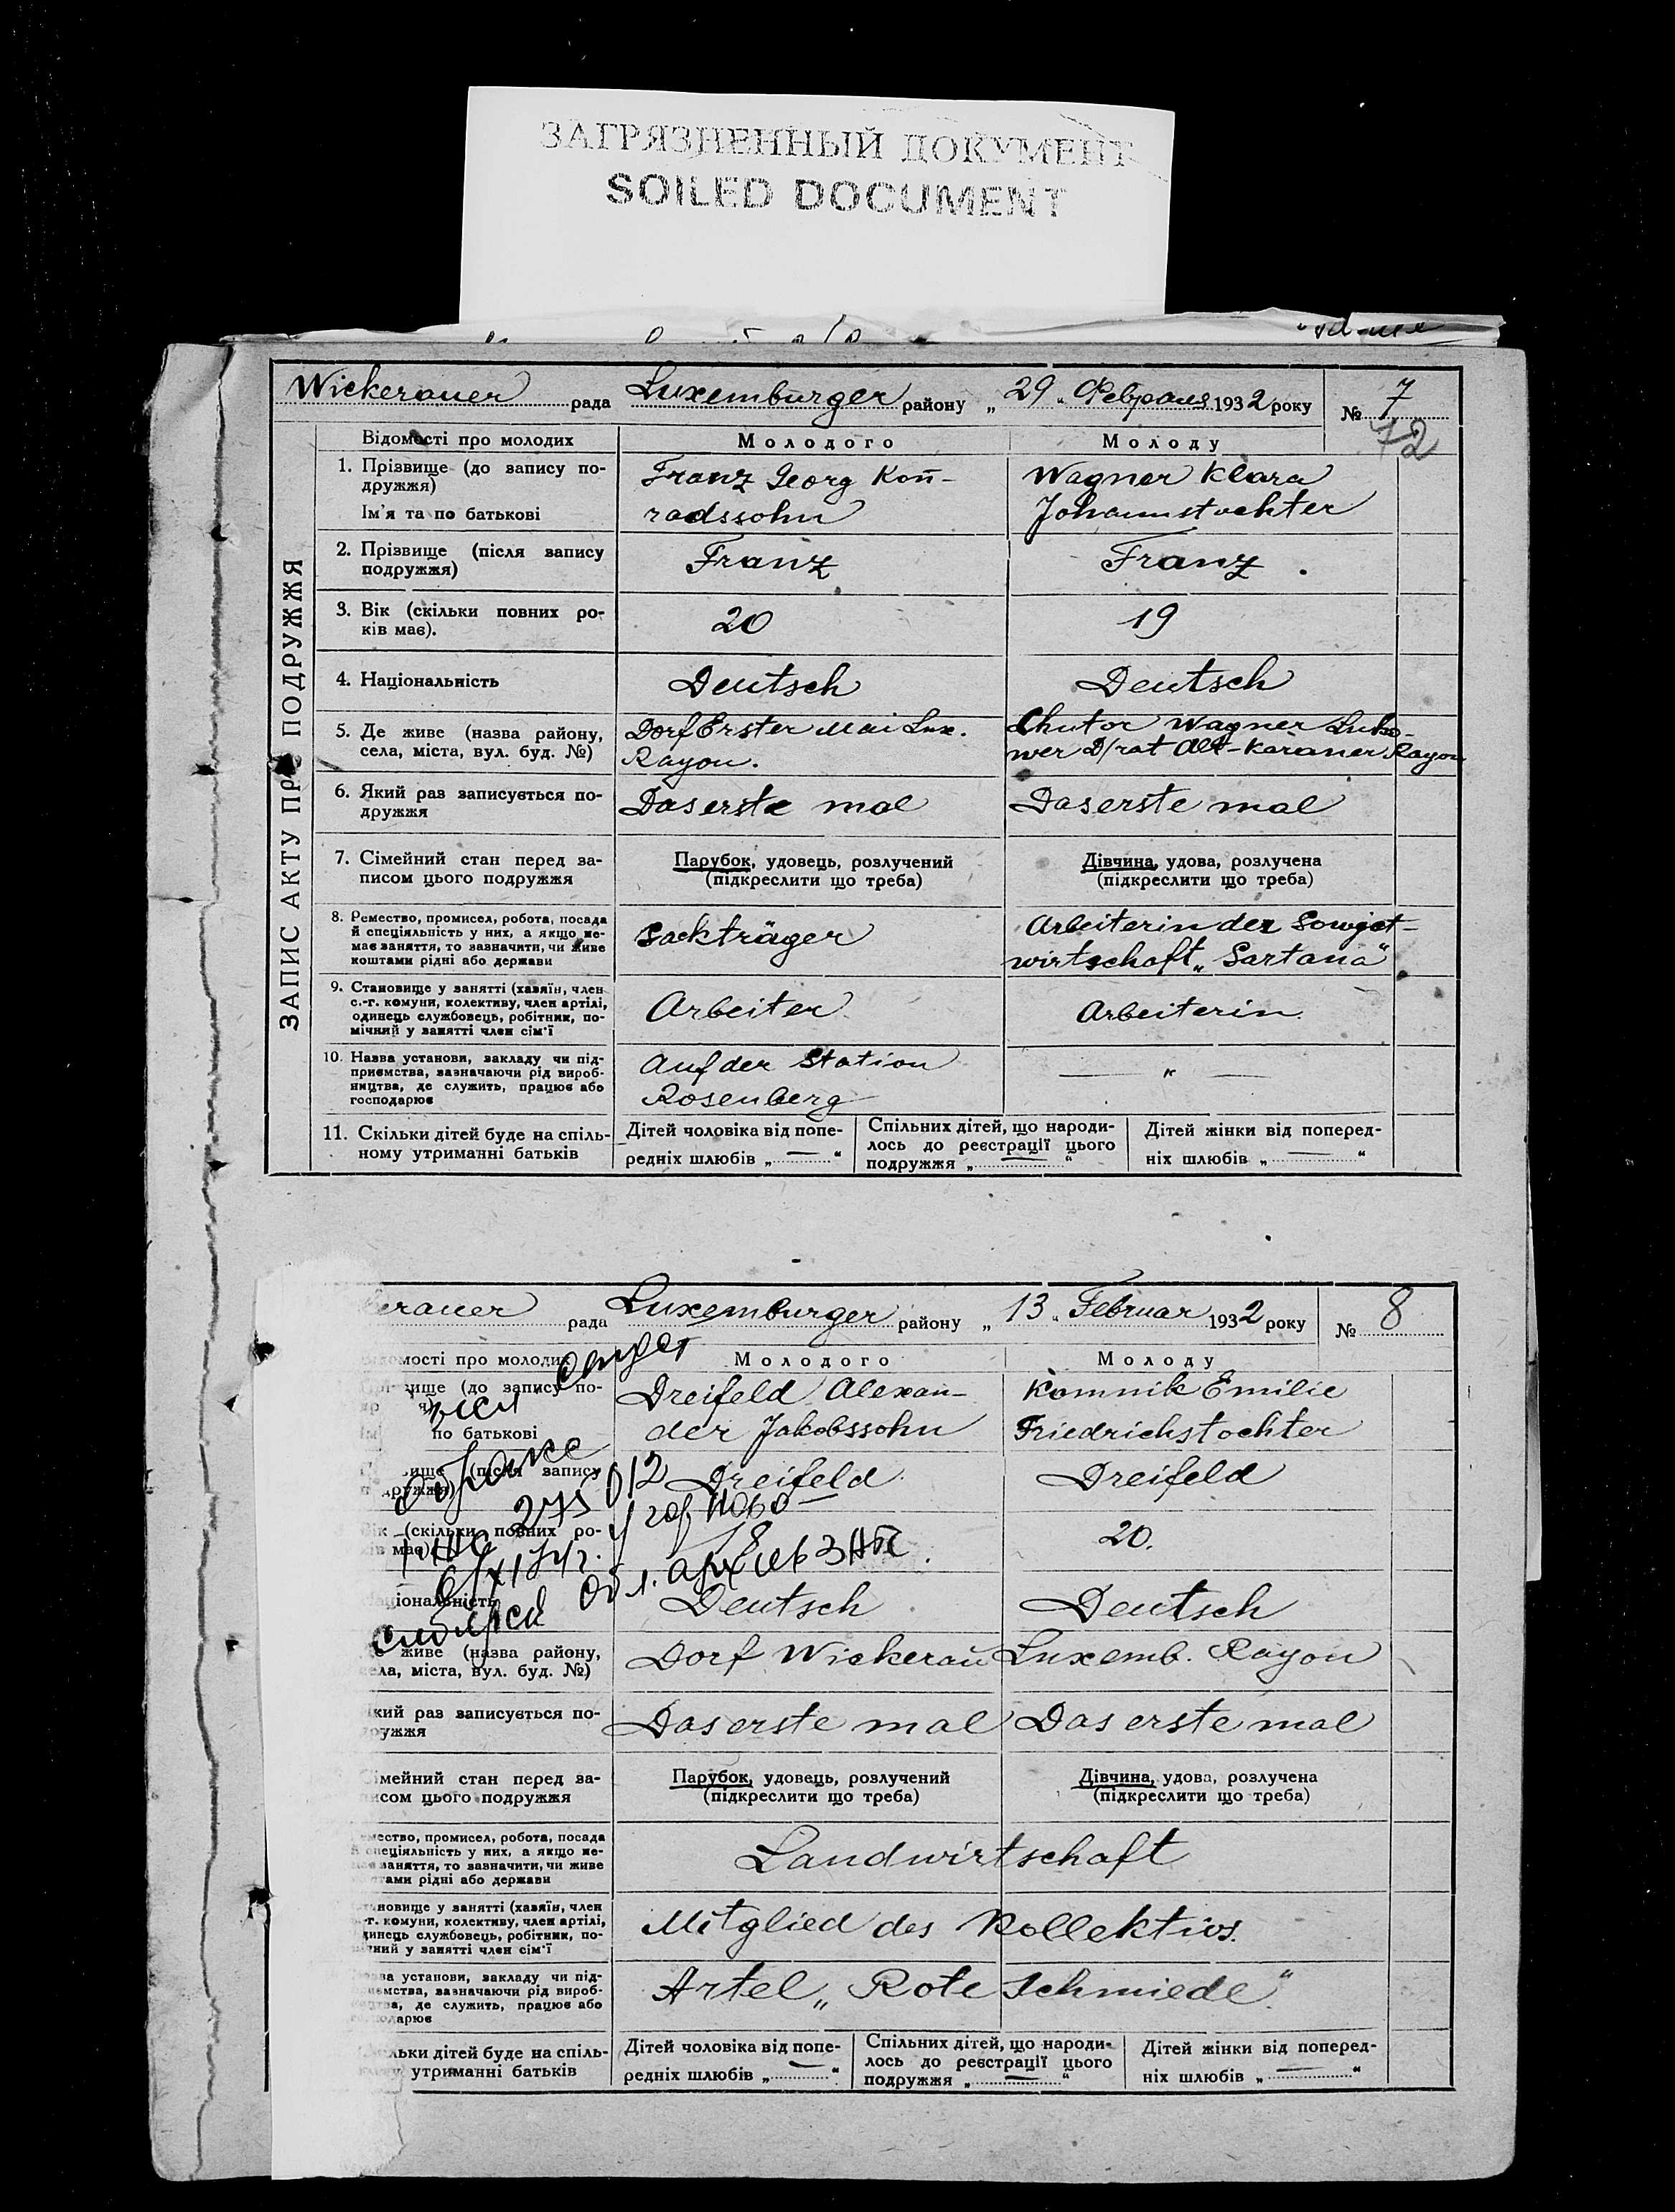 ЗАГРЯЗНЕННЫЙ ДОКУМЕНТ
SOILED DOCUMENT
Wickerauer рада Luxemburger району „ 29 „ Февраля 1932 року № 7
72
ЗАПИС АКТУ ПРО ПОДРУЖЖЯ
Відомості про молодих Молодого Молоду
1. Прізвище (до запису по-
дружжя)
Ім'я та по батькові
Franz Georg Kon̄-
radssohn
Wagner Klara
Johannstochter
2. Прізвище (після запису
подружжя)
Franz
Franz
3. Вік (скільки повних ро-
ків має).
20
19
4. Національність
Deutsch
Deutsch
5. Де живе (назва району,
села, міста, вул. буд. №)
Dorf Erster Mai Lux.
Rayon.
Chutor Wagner
wer D/rat Alt-Karaner Rayon
6. Який раз записується по-
дружжя
Das erste mal
Das erste mal
7. Сімейний стан перед за-
писом цього подружжя
Парубок, удовець, розлучений
(підкреслити що треба)
Дівчина, удова, розлучена
(підкреслити що треба)
8. Ремество, промисел, робота, посада
й спеціяльність у них, а якщо не-
має заняття, то зазначити, чи живе
коштами рідні або держави
Sackträger
Arbeiterin der Sowjet-
wirtschaft „Sartana"
9. Становище у занятті (хазяїн, член
с.-г. комуни, колективу, член артілі,
одинець службовець, робітник, по-
мічний у занятті член сім'ї
Arbeiter
Arbeiterin.
10. Назва установи, закладу чи під-
приємства, зазначаючи рід вироб-
ництва, де служить, працює або
господарює
Auf der Station
Rosenberg
— " —
11. Скільки дітей буде на спіль-
ному утриманні батьків
Дітей чоловіка від попе-
редніх шлюбів „ — "
Спільних дітей, що народи-
лось до реєстрації цього
подружжя „ — "
Дітей жінки від поперед-
ніх шлюбів „ — "
erauer рада Luxemburger району „ 13 „ Februar 1932 року № 8
домості про молодих Молодого Молоду
ище (до запису по-
по батькові
Dreifeld Alexan-
der Jakobssohn
Komnik Emilie
Friedrichstochter
ище (після запису
дружжя)
Dreifeld
Dreifeld
Вік (скільки повних ро-
має)
18
20.
ціональність
Deutsch
Deutsch
живе (назва району,
ла, міста, вул. буд. №)
Dorf Wickerau Luxemb. Rayon
кий раз записується по-
ружжя
Das erste mal
Das erste mal
імейний стан перед за-
исом цього подружжя
Парубок, удовець, розлучений
(підкреслити що треба)
Дівчина, удова, розлучена
(підкреслити що треба)
мество, промисел, робота, посада
спеціяльність у них, а якщо не-
заняття, то зазначити, чи живе
тами рідні або держави
Landwirtschaft
новище у занятті (хазяїн, член
-г. комуни, колективу, член артілі,
инець службовець, робітник, по-
чний у занятті член сім'ї
Mitglied des Kollektivs.
ва установи, закладу чи під-
ємства, зазначаючи рід вироб-
тва, де служить, працює або
подарює
Artel „Rote Schmiede".
льки дітей буде на спіль-
утриманні батьків
Дітей чоловіка від попе-
редніх шлюбів „ — "
Спільних дітей, що народи-
лось до реєстрації цього
подружжя „ — "
Дітей жінки від поперед-
ніх шлюбів „ — "